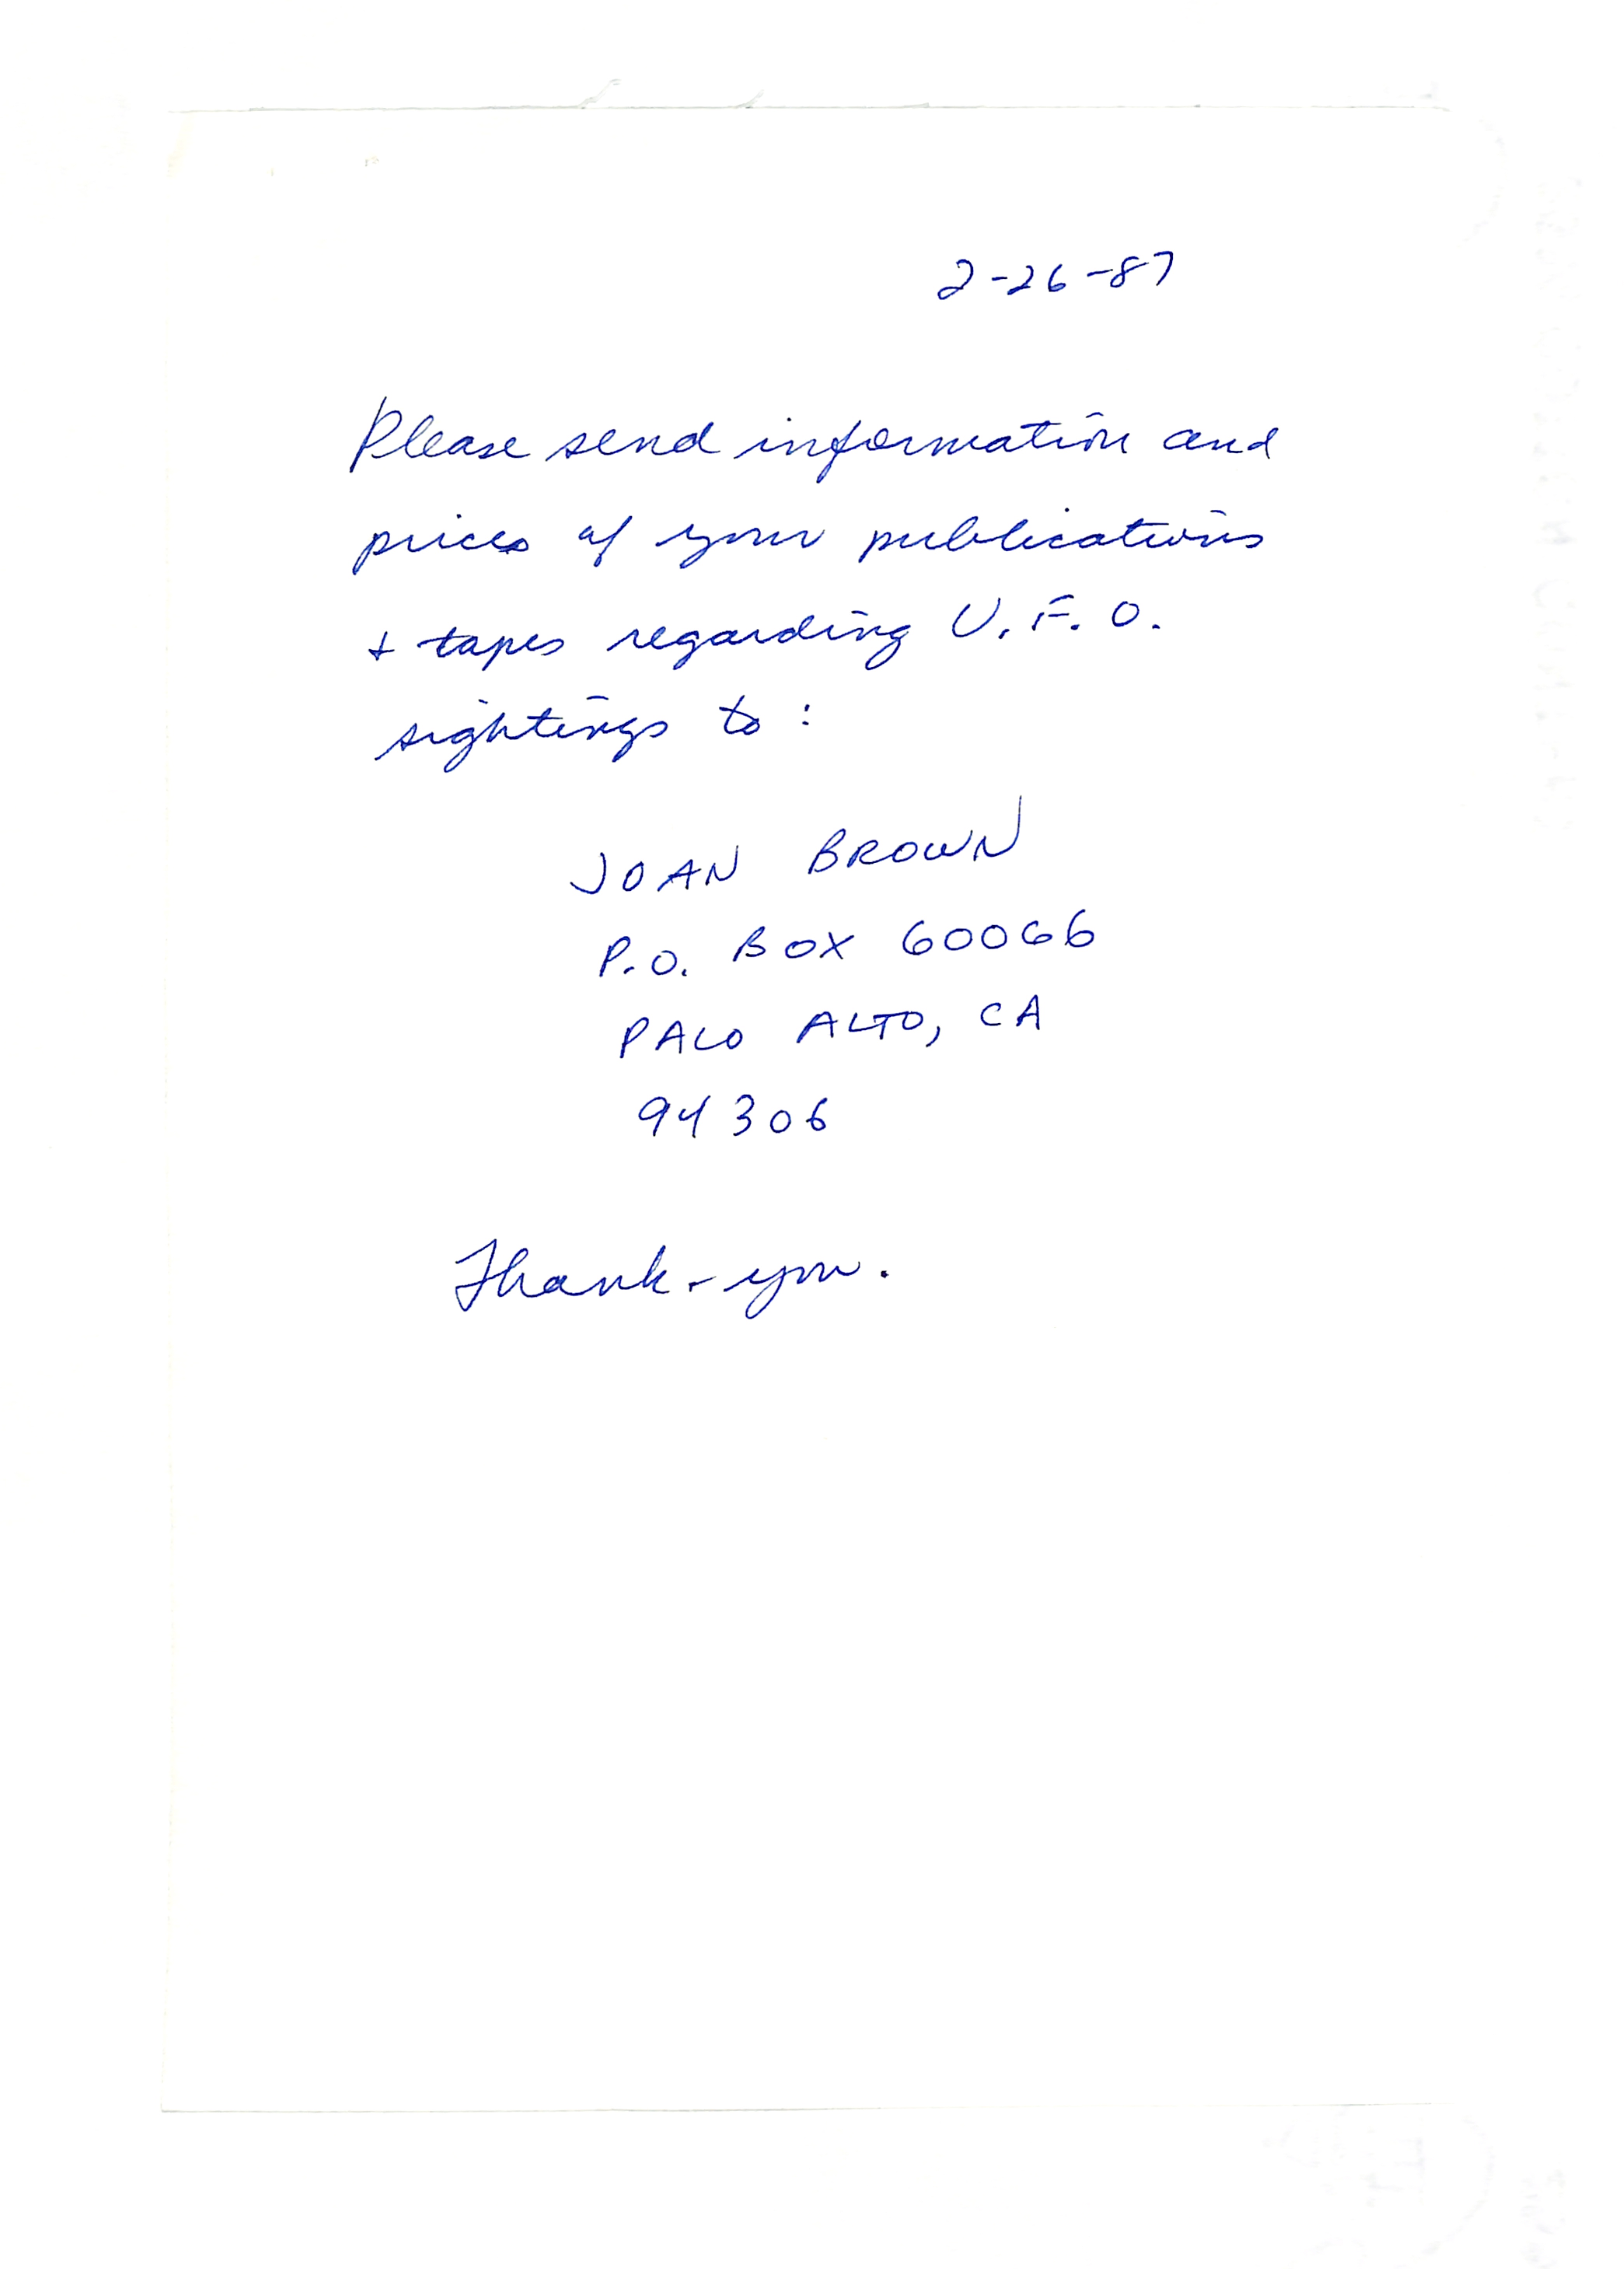 2-26-87
Please send information and
prices of your publications
+ tapes regarding U.F.O.
sightings to:
JOAN BROWN
P.O. BOX 60066
PALO ALTO, CA
94306
Thank-you.